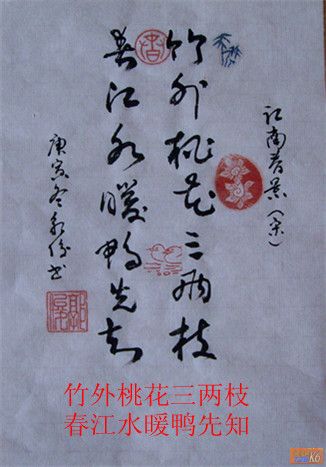 江南春景（宋）
竹外桃花三两枝
春江水暖鸭先知
庚寅冬永缘书
竹外桃花三两枝
春江水暖鸭先知
K6